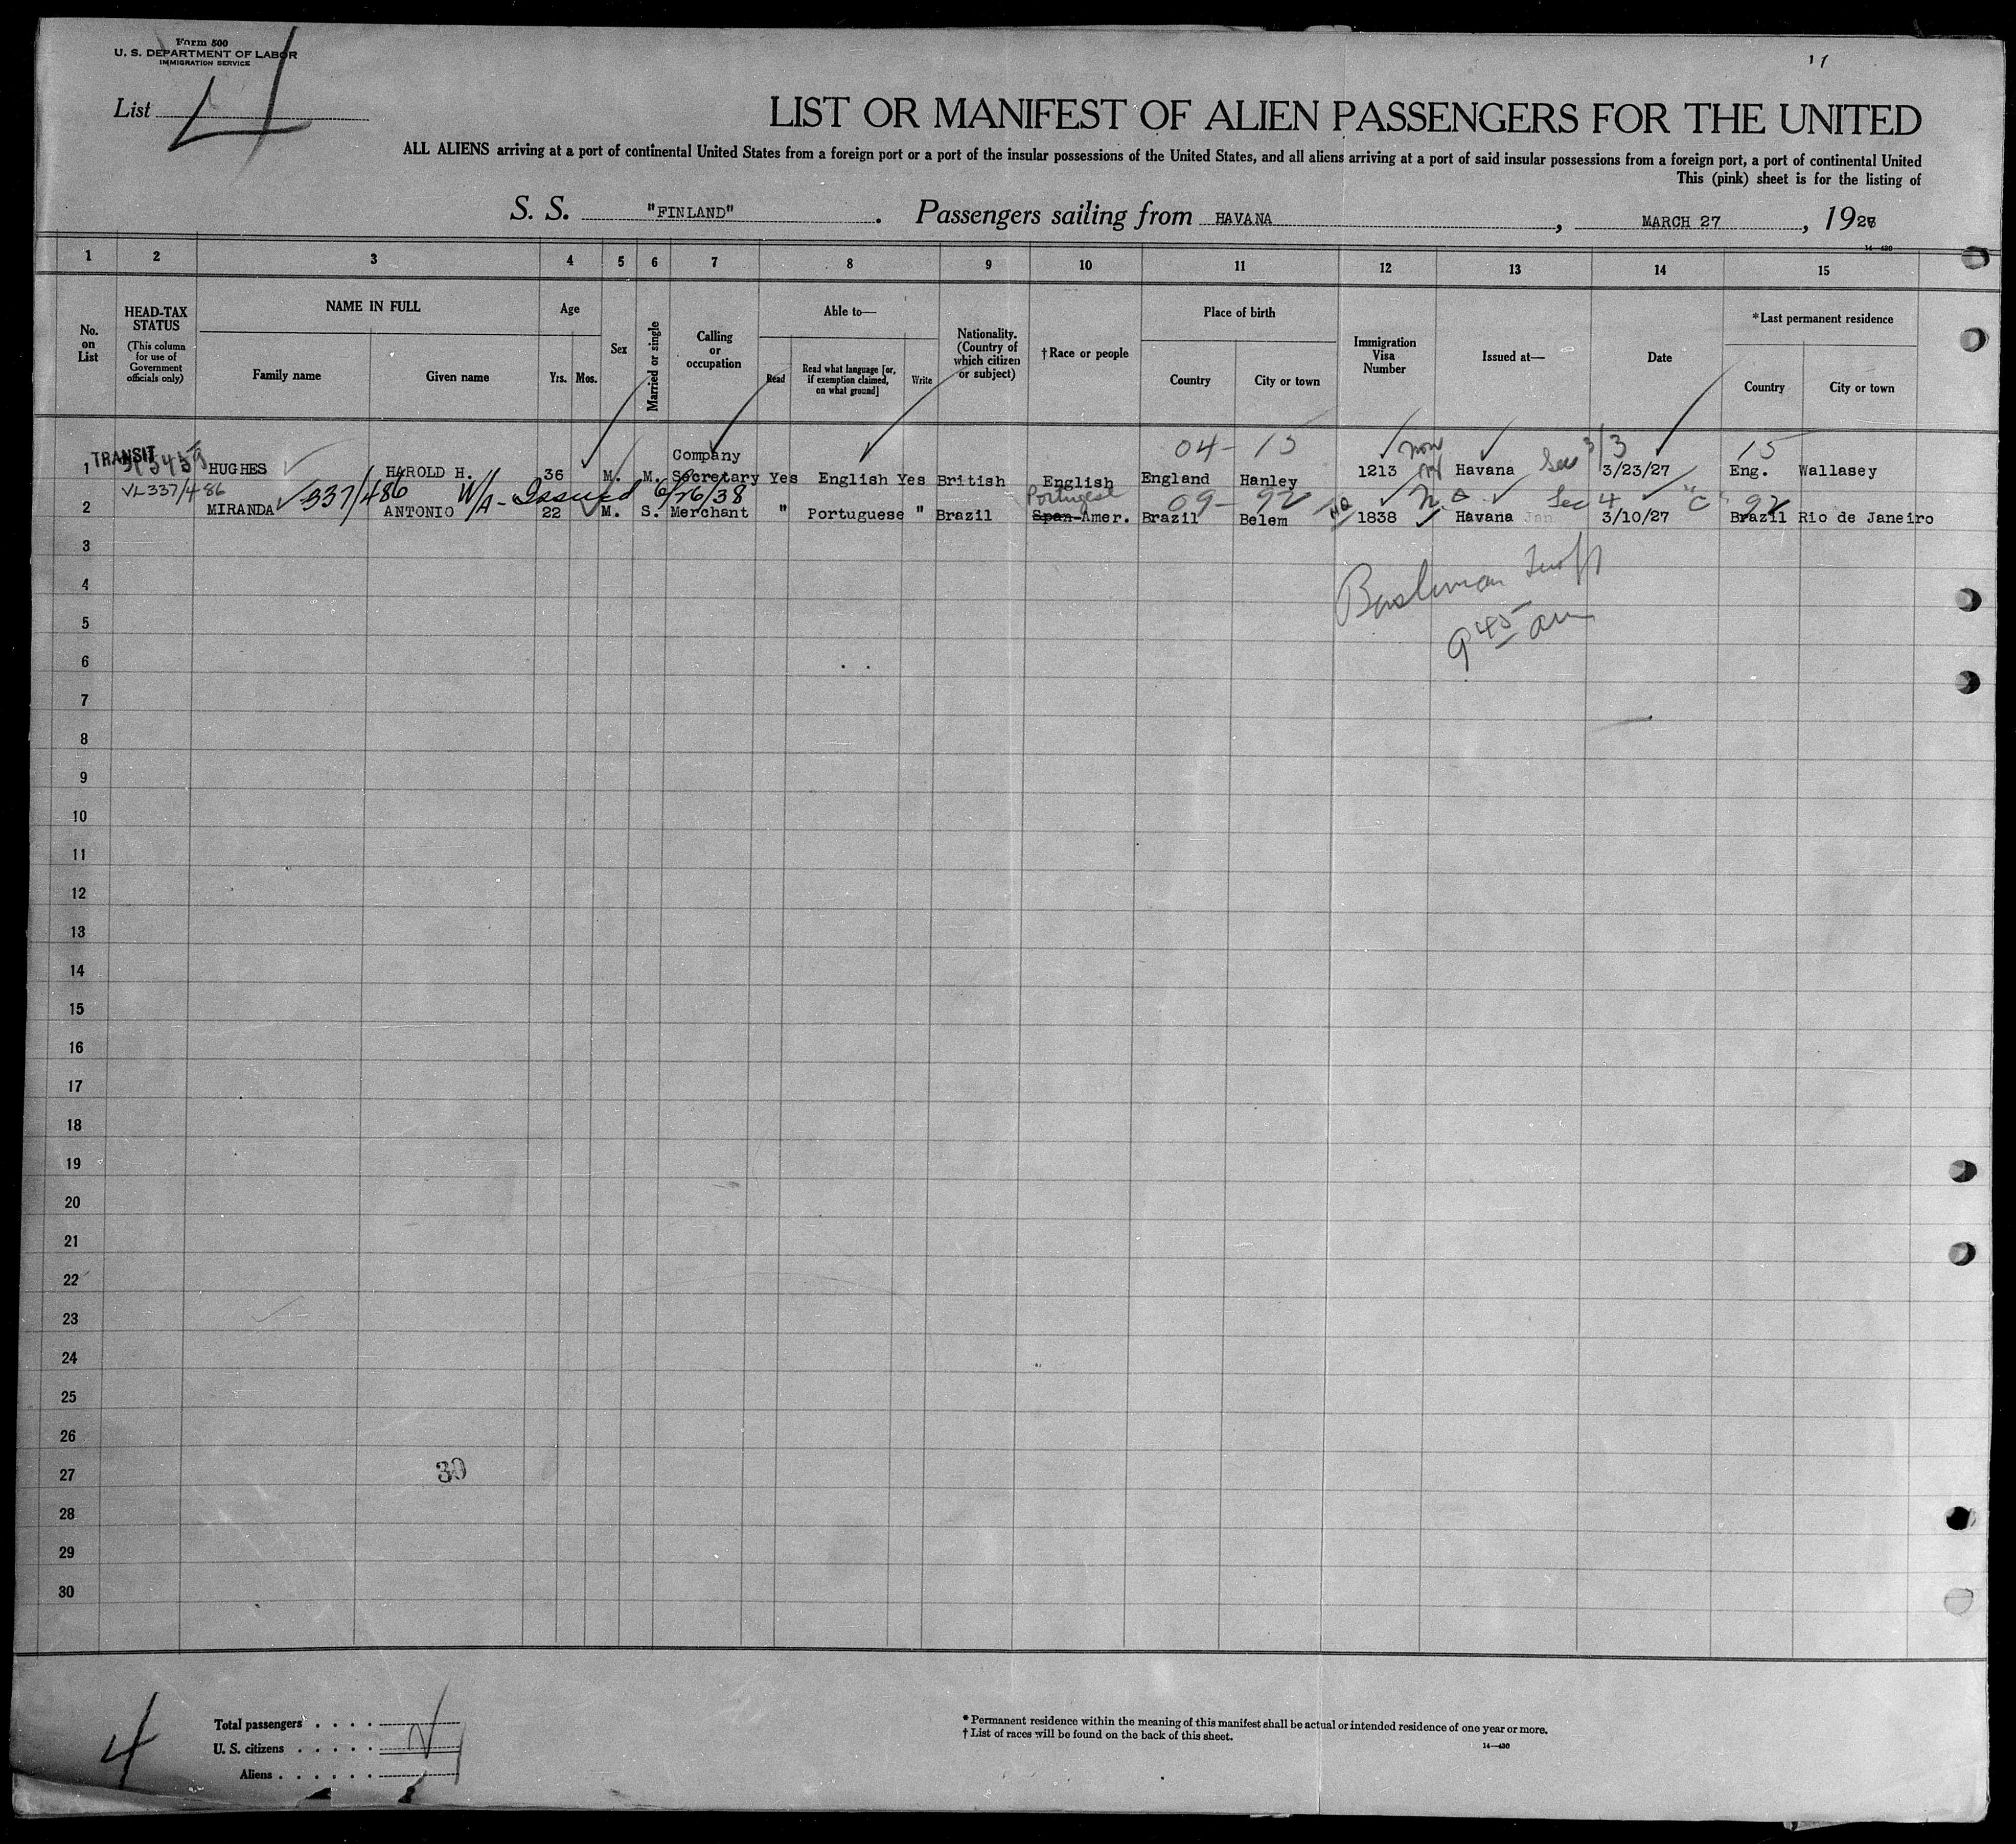 Form 500
U. S. DEPARTMENT OF LABOR
IMMIGRATION SERVICE
List 4
LIST OR MANIFEST OF ALIEN PASSENGERS FOR THE UNITED
ALL ALIENS arriving at a port of continental United States from a foreign port or a port of the insular possessions of the United States, and all aliens arriving at a port of said insular possessions from a foreign port, a port of continental United
This (pink) sheet is for the listing of
S. S. "FINLAND". Passengers sailing from HAVANA, MARCH 27, 1927
14—430
1 2 3 4 5 6 7 8 9 10 11 12 13 14 15
No. on List
HEAD-TAX STATUS (This column for use of Government officials only)
NAME IN FULL
Family name Given name
Age
Yrs. Mos.
Sex
Married or single
Calling or occupation
Able to—
Read Read what language [or, if exemption claimed, on what ground] Write
Nationality. (Country of which citizen or subject)
†Race or people
Place of birth
Country City or town
Immigration Visa Number
Issued at—
Date
*Last permanent residence
Country City or town
04- 15 non 3/3 15
1 TRANSIT HUGHES HAROLD H. 36 M. M. Company Secretary Yes English Yes British English England Hanley 1213 Havana 3/23/27 Eng. Wallasey
VL337/486 337/486 W/A - Issued 6/26/38
Portugese 09- 92 Sec 4 "C" 92
2 MIRANDA ANTONIO 22 M. S. Merchant " Portuguese " Brazil Span-Amer. Brazil Belem 1838 Havana 3/10/27 Brazil Rio de Janeiro
3
4
5
9 45 am
6
7
8
9
10
11
12
13
14
15
16
17
18
19
20
21
22
23
24
25
26
27
30
28
29
30
4
Total passengers
U. S. citizens
Aliens
* Permanent residence within the meaning of this manifest shall be actual or intended residence of one year or more.
† List of races will be found on the back of this sheet.
14—430